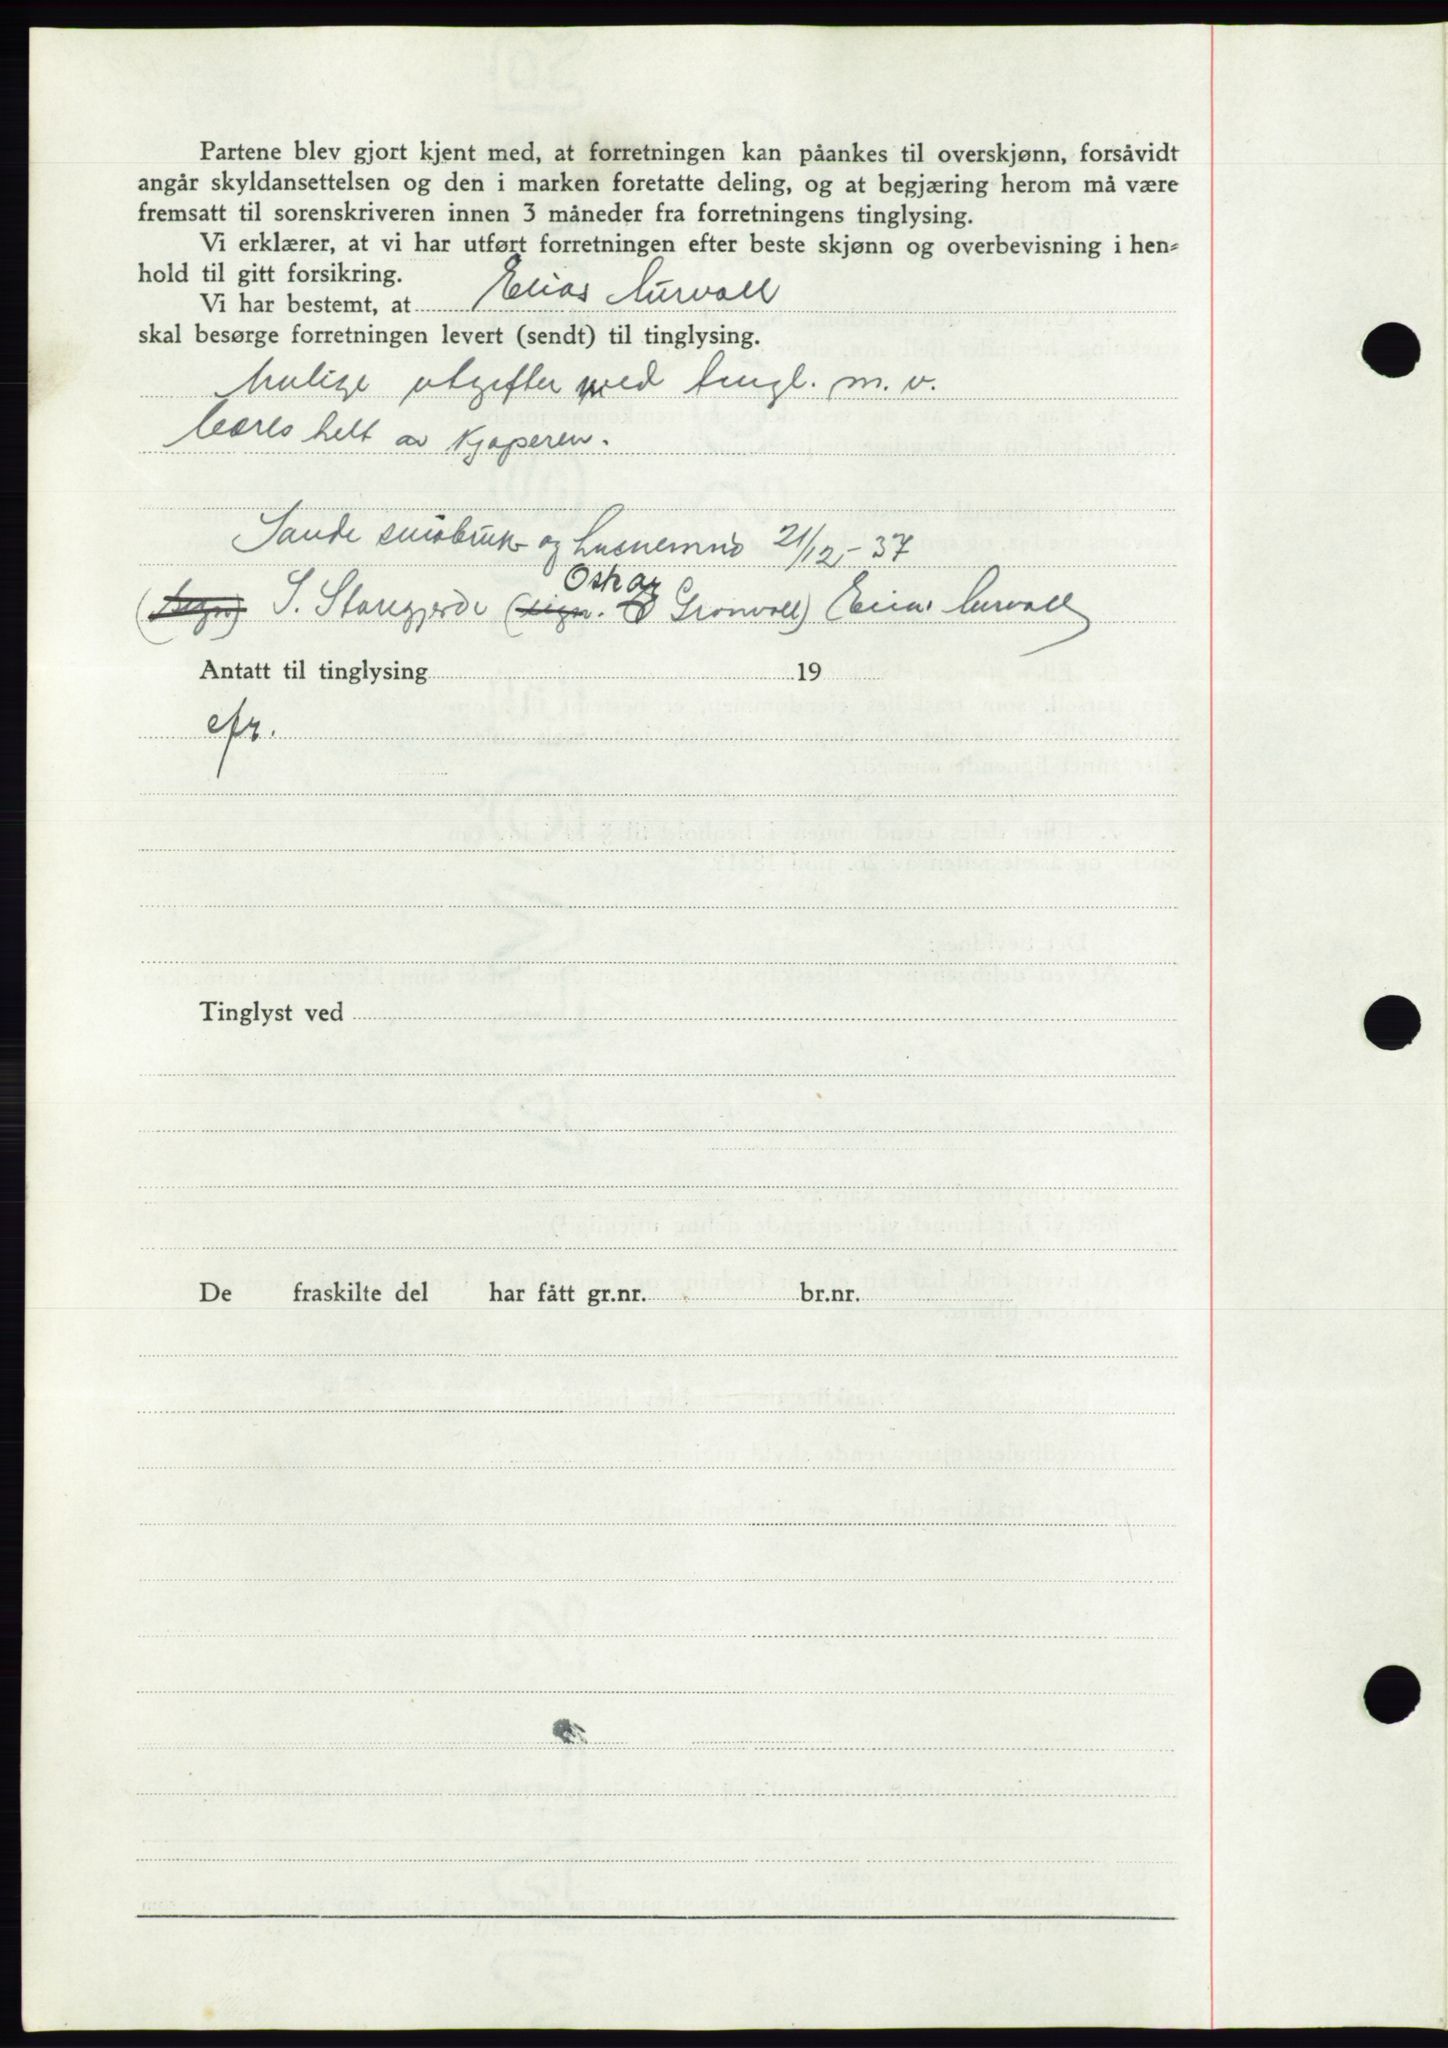 Partene blev gjort kjent med, at forretningen kan påankes til overskjønn, forsåvidt
angår skyldansettelsen og den i marken foretatte deling, og at begjæring herom må være
fremsatt til sorenskriveren innen 3 måneder fra forretningens tinglysing.
Vi erklærer, at vi har utført forretningen efter beste skjønn og overbevisning i hen-
hold til gitt forsikring.
Vi har bestemt, at Elias Aurvoll
skal besørge forretningen levert (sendt) til tinglysing.
Mulige utgifter med tingl. m. v.
bæres helt av kjøperen.
Sande småbruk og 21/12 - 37
Oskar
(sign) S. Storegjerde (sign. Grönvoll) Elias Aurvoll
Antatt til tinglysing 19
efr.
Tinglyst ved
De fraskilte del har fått gr.nr. br.nr.